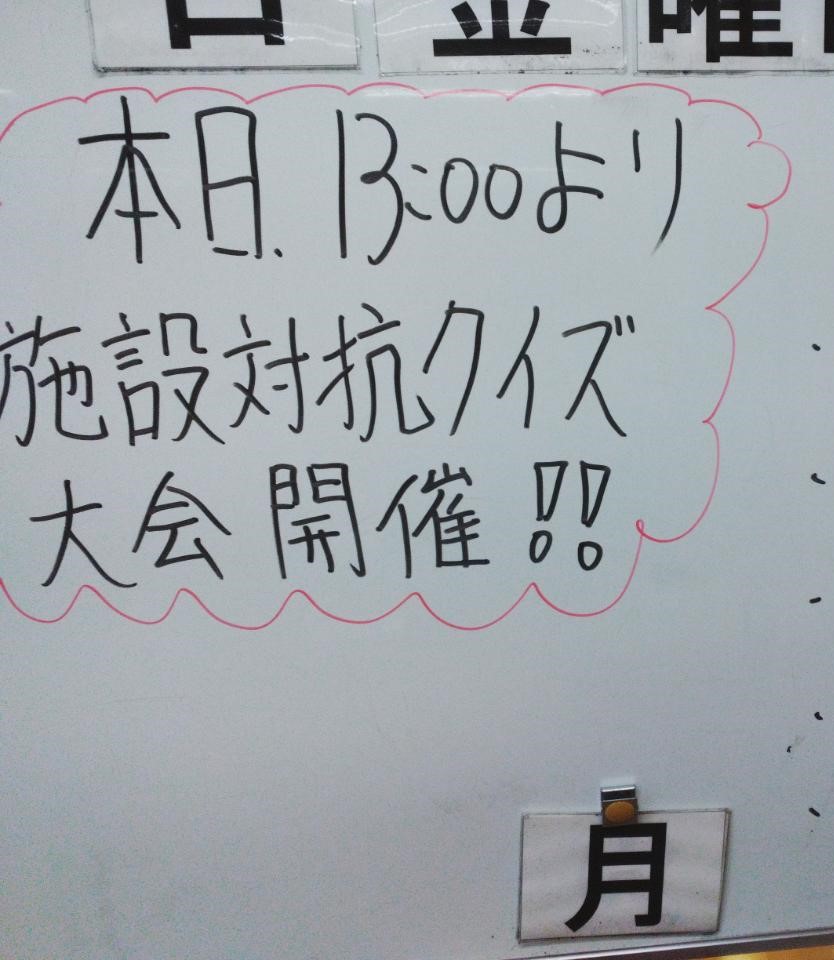 日 金 曜
本日、13:00より
施設対抗クイズ
大会開催!!
月